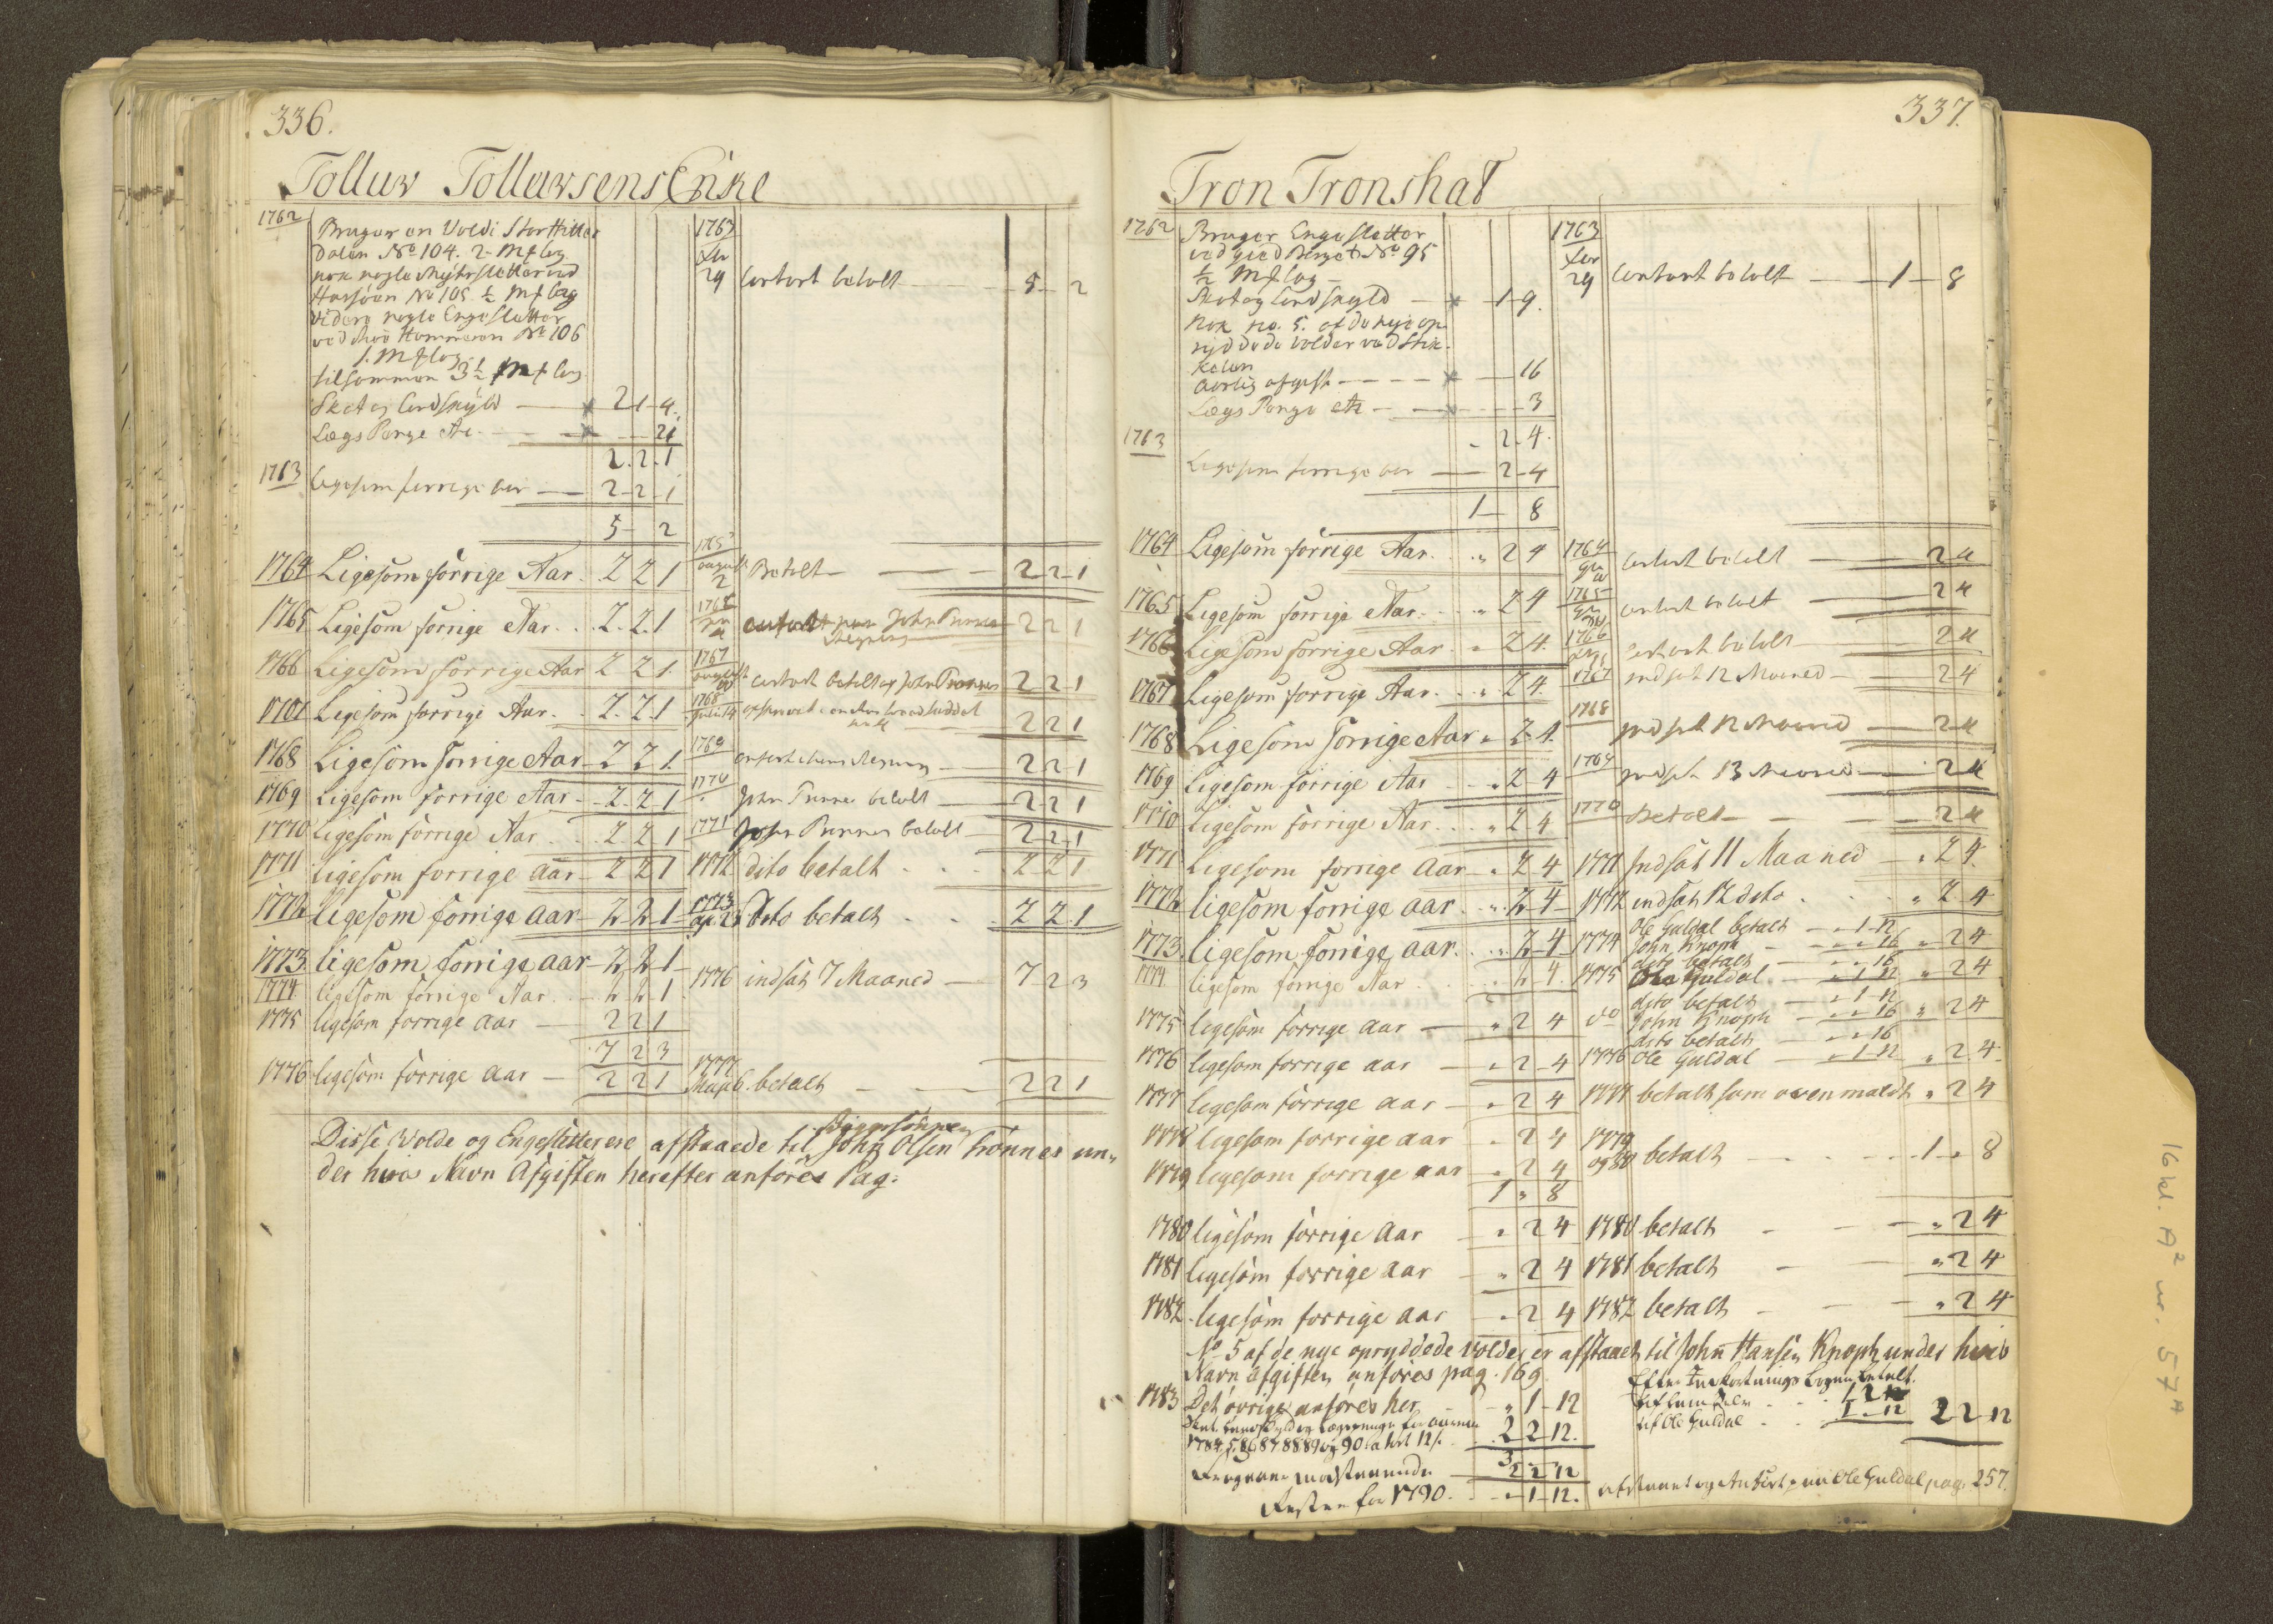 336.
Tolluw Tolluwsens Enke
1762 Bruger en Vold i Stor Hitter
dalen No 104. 2 Mf lag
nok nogle Myhrsletter ved
Harsöen No 105 ½ Mf lag
videre nogle Engesletter
ved Hammeren No 106
1. Mf lag
tilsammen 3½ Mf lag
Skat og Landskyld — 2 1 4.
Lægs Penge — 21
2. 2. 1
1763 Ligesom forrige aar — 2 2 1
5 — 2
1764 Ligesom forrige Aar. 2 2 1
1765 Ligesom forrige Aar. . 2. 2. 1
1766 Ligesom forrige Aar 2 2 1.
Ligesom forrige Aar. . 2. 2. 1
1768 Ligesom forrige Aar 2 2 1.
1769 Ligesom forrige Aar 2. 2 1
1770 ligesom forrige Aar . . 2 2 1
1771 ligesom forrige aar 2 2 1
1772 ligesom forrige aar 2 2 1
1773. ligesom forrige aar 2 2 1
1774 ligesom forrige Aar . . 2 2 1
1775 ligesom forrige aar — 2 2 1
7 2 3
1776 ligesom forrige aar — 2 2 1
1763
29 Contant betalt — 5 — 2
august 2 Betalt — 2 2 1
John 2 2 1
1767 august Contant betalt af John 2 2 1
1768 2 2 1
1769 2 2 1
1770 John betalt — 2 2 1
1771 John betalt — 2 2 1
1772 dito betalt . . . 2 2 1
1773 Dito betalt . . . 2 2 1
1776 indsat 7 Maaned — 7 2 3
1777 May 6. betalt — 2 2 1
Disse Volde og Engesletter ere afstaaede til John Olsen Trönnes un-
der hvis Navn Afgiften herefter anföres Pag:
337.
Tron Tronshat
1762 Bruger Engesletter
ved No 95
½ Mf lag —
Skat og Landskyld — 1 9.
Nok No. 5. af de nye op-
ryddede volder ved Stik-
kelen
aarlig afgift — 16
Lægs Penge — 3
. 2. 4.
1763 Ligesom forrige aar — 2 4
1 — 8
1764 Ligesom forrige Aar. . „ 2 4
1765 Ligesom forrige Aar. . „ 2 4
1766 Ligesom forrige Aar „ 2 4.
1767 Ligesom forrige Aar. . „ 2 4.
1768 Ligesom forrige Aar „ 2 4.
1769 Ligesom forrige Aar „ 2 4
1770 Ligesom forrige Aar. . „ 2 4
1771 Ligesom forrige aar „ 2 4
1772 ligesom forrige aar . „ 2 4
1773. ligesom forrige aar. . „ 2 4
1774 ligesom forrige Aar . . 2 4.
1775 ligesom forrige aar — „ 2 4
1776 ligesom forrige aar — „ 2 4
1777 ligesom forrige aar — „ 2 4
1778 ligesom forrige aar „ 2 4
1779 ligesom forrige aar „ 2 4
1 „ 8
1780 ligesom forrige aar — „ 2 4
1781 ligesom forrige aar — „ 2 4
1782. ligesom forrige aar — „ 2 4
1763
29 Contant betalt — 1 — 8
1764 Contant betalt — 2 4
1765 Contant betalt — 2 4
1766 Contant betalt — 2 4
1767 indsat 12 Maaned — 2 4
1768 indsat 12 Maaned — 2 4
1769 indsat 13 Maaned — 2 4
1770 Betalt — 2 4
1771 Indsat 11 Maaned — „ 2 4.
1772 indsat 12 dito . . „ 2 4
1774 Ole Guldal betalt — „ 1 12
John Knoph — „ „ 16 „ 2 4
dito betalt — „ „ 16
1775 Ole Guldal. — „ 1 12 „ 2 4
dito betalt — „ 1 12
do John Knoph — „ „ 16 „ 2 4
dito betalt — „ „ 16
1776 Ole Guldal — „ 1 12 „ 2 4.
1777 betalt som oven maldt „ 2 4
1779 og 80 betalt — 1 „ 8
1780 betalt — „ 2 4
1781 betalt — „ 2 4
1782 betalt — „ 2 4
No 5 af de nye opryddede Volder er afstaaet til John Hansen Knoph under hvis
Navn afgiften anföres pag. 169.
1783 Det övrige anföres her . . „ 1 12
1784, 5, 86 87 88 89 og 90 2 2 12.
2 2 12
Resten for 1790. . . „ 1 12.
betalt.
af Ole Guldal . . 1 „ 12 2 2 12
Ole Guldal pag. 257.
16 kl. A² nr. 57 A